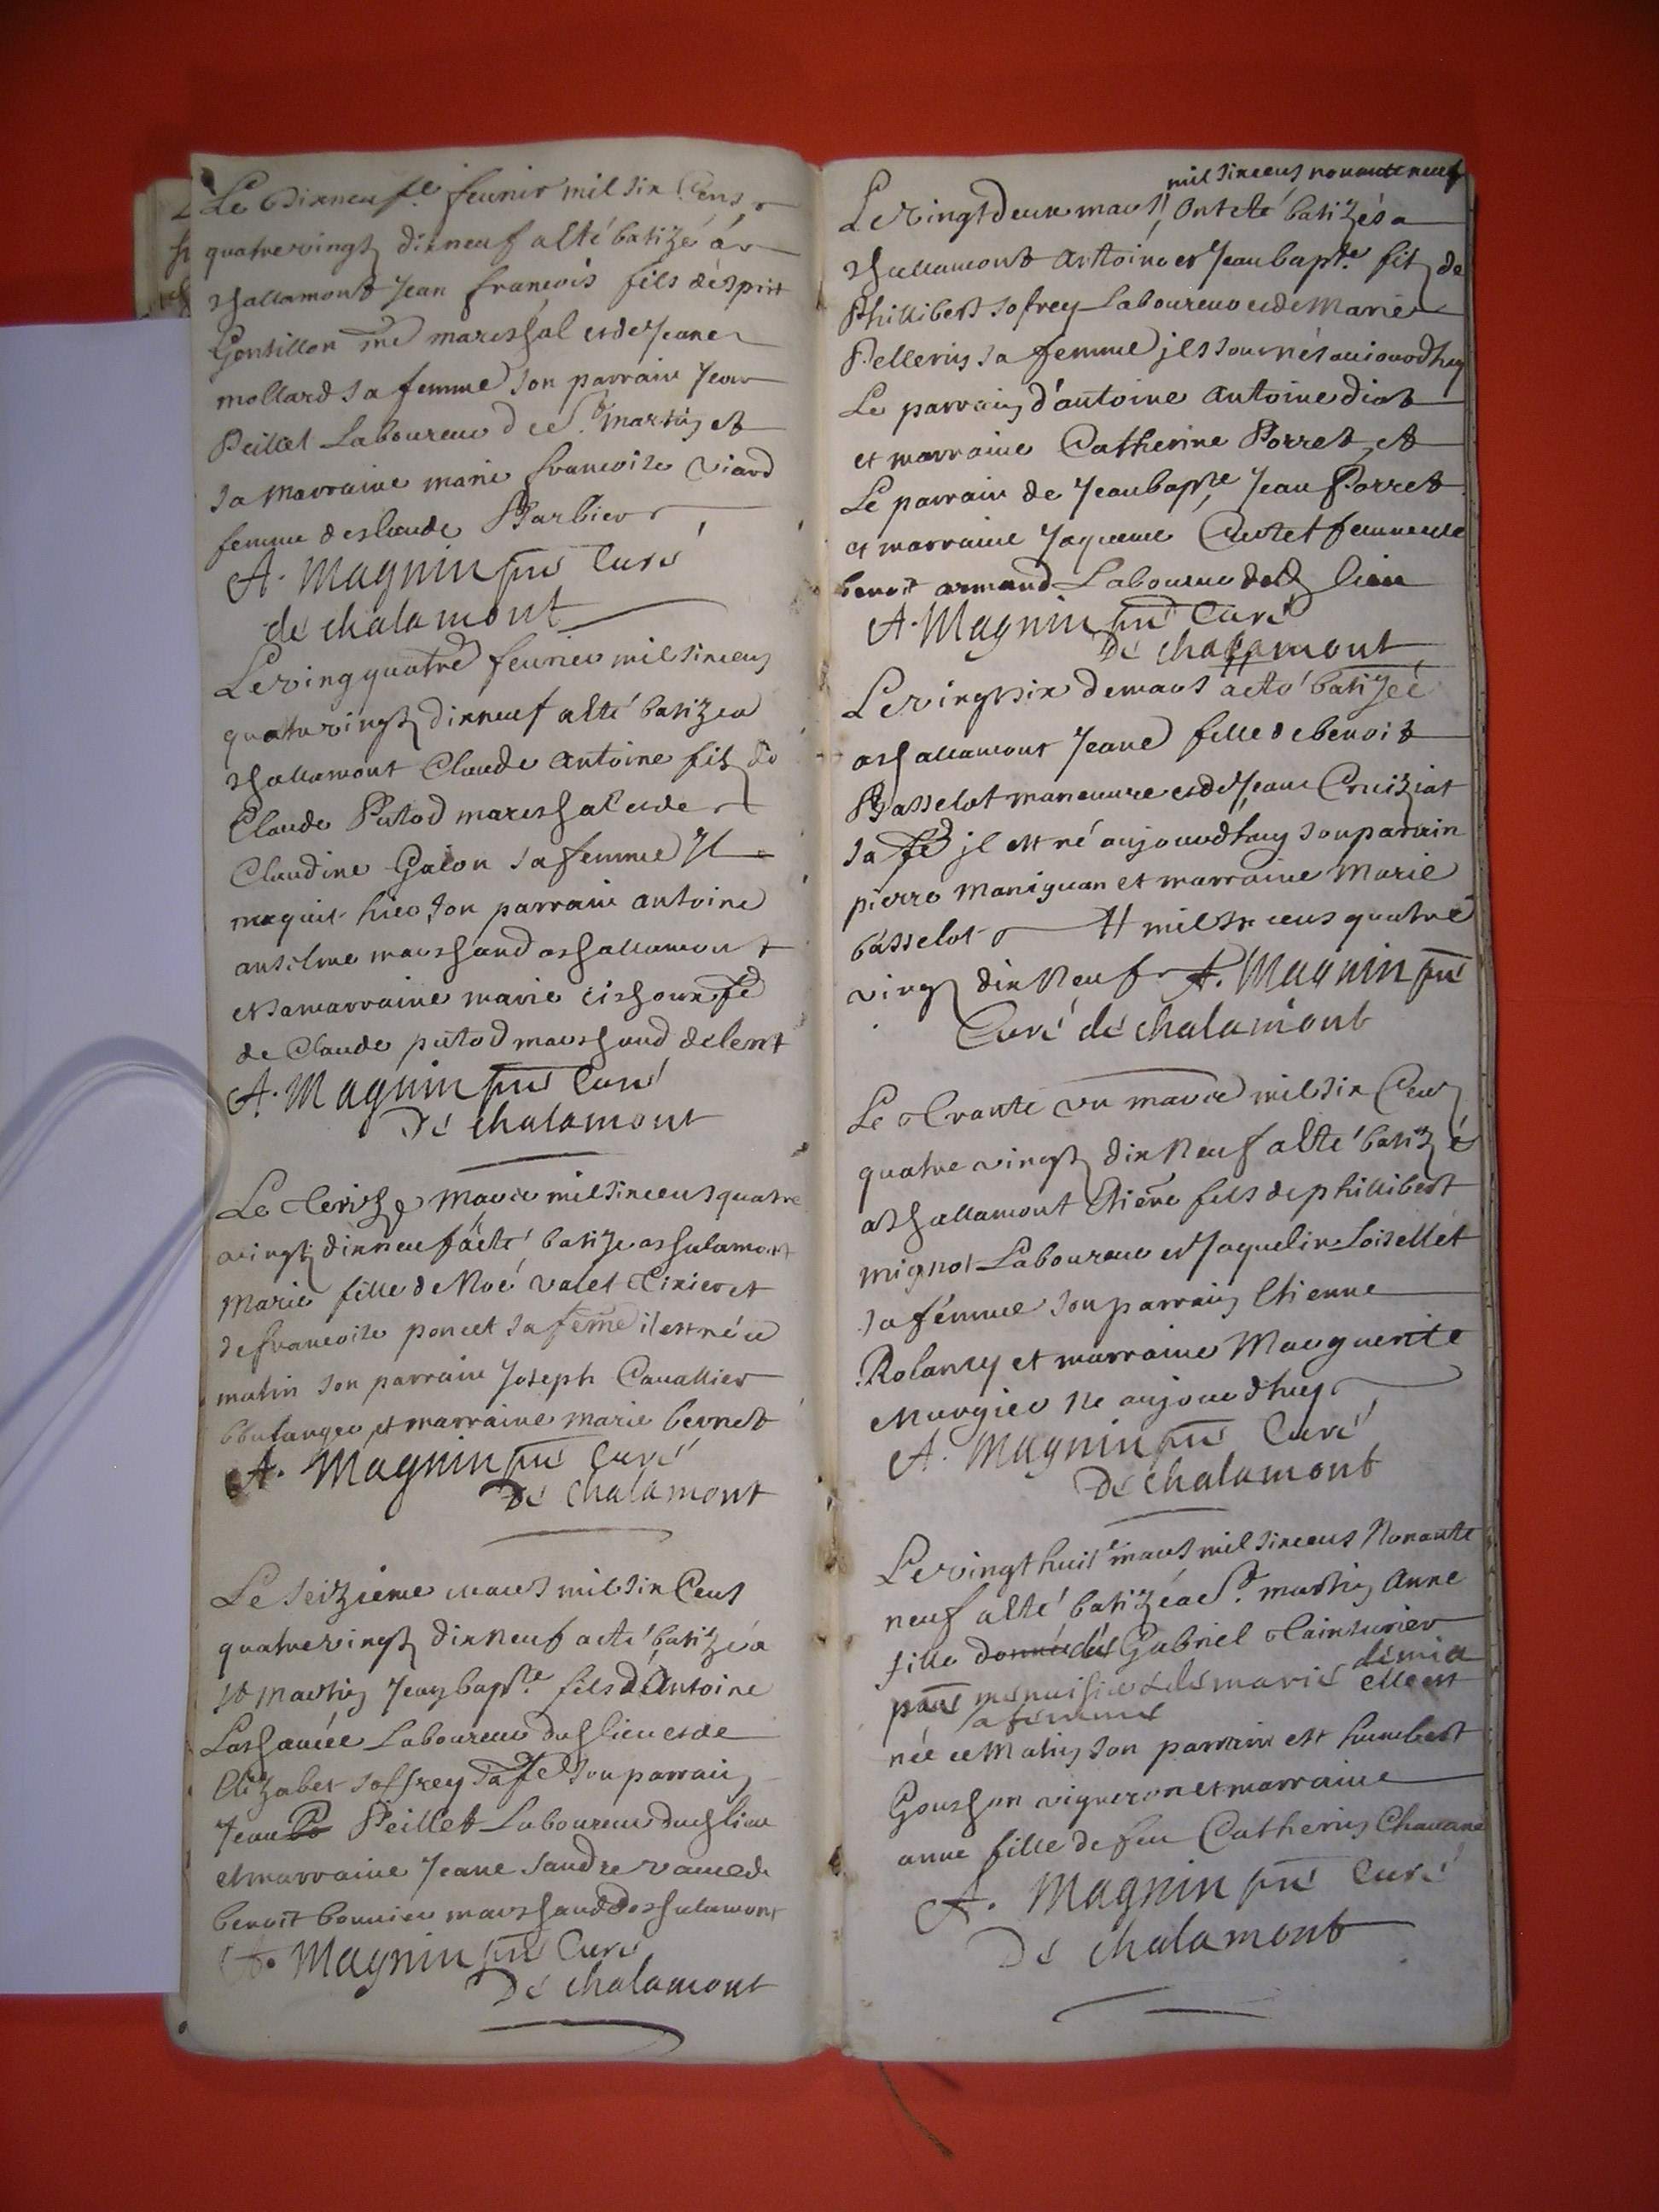 Le Dixneuf.e feurier mil six Cens
quatrevingtz dixneuf a esté batizé a
Challamont Jean francois fils d'esprit
Gontillon me mareschal et de Jeane
mollard sa femme son parrain Jean
Peillet Laboureur de St. martin et
sa Marraine marie francoise viard
femme de claude Barbier
A. Magnin pre Curé
de chalamont
Le ving quatre feurier mil six cens
quatrevingtz dixneuf a esté batizé a
Challamont Claude antoine filz de
Claude Putod mareschal et de
Claudine Galon sa femme Il
naquit hier son parrain antoine
anselme marchand a challamont
et sa marraine marie cichoux fe
de Claude putod marchand de lent
A. Magnin pre Curé
De chalamont
Le Mars mil six cens quatre
vingtz dixneuf a esté batizé a chalamont
Marie fille de Noé valet Tixier et
de francoise poncet sa feme il est né ce
matin son parrain Joseph Cauallier
boulanger et marraine marie bernet
A. Magnin pre Curé
De chalamont
Le seizieme mars mil six Cens
quatrevingtz dix Neuf a eté batizé a
St Martin Jean bapte. fils d'Antoine
Lachanée Laboureur dud lieu et de
Elizabet soffrey sa fe son parrain
Jean Peillet Laboureur dud lieu
et marraine Jeane sandre vauce de
benoit bonnier marchand de chalamont
A. Magnin pre Curé
De chalamont
mil sixcens nonante neuf
Le vingtdeux mars, ont eté batizés a
Challamont Anttoine et Jean bapte. filz de
Phillibert sofrey Laboureur et de Marie
Pellerin sa femme jls sont nés auiourdhuy
Le parrain d'antoine antoine diot
et marraine Catherine Porret et
Le parrain de Jean bapte, Jean Porret
et marraine Jaqueme Cutet femme de
benoit armand Laboureur dud lieu
A. Magnin pre Curé
De chalamont
Le vingtsix de mars a eté batizeé
a challamont Jeane fille de benoit
Basselot maneuure et de Jeane Cruiziat
sa fe jl est né aujourdhuy son parrain
pierre Maniguan et marraine Marie
basselot # mil six cens quatre
vingt dix Neuf A. Magnin pre
Curé de chalamont
Le Trante un mars mil six Cens
quatre vingtz dix Neuf a esté batizé
a challamont Etiene fils de phillibert
mignot Laboureur et Jaqueline Loisellet
sa femme son parrain Etienne
Rolancy et marraine Marguerite
Murgier Ne aujourdhuy
A. Magnin pre Curé
De chalamont
Le vingt huite mars mil sixcens Nonante
neuf a esté batizé a St. martin anne
fille donnée de Gabriel Tainturier
menuisier de marie démia elle est
sa femme
née ce Matin son parrain est humbert
Gouchon vigneron et marraine
anne fille de feu Catherin Chauane
A. Magnin pre Curé
De chalamont